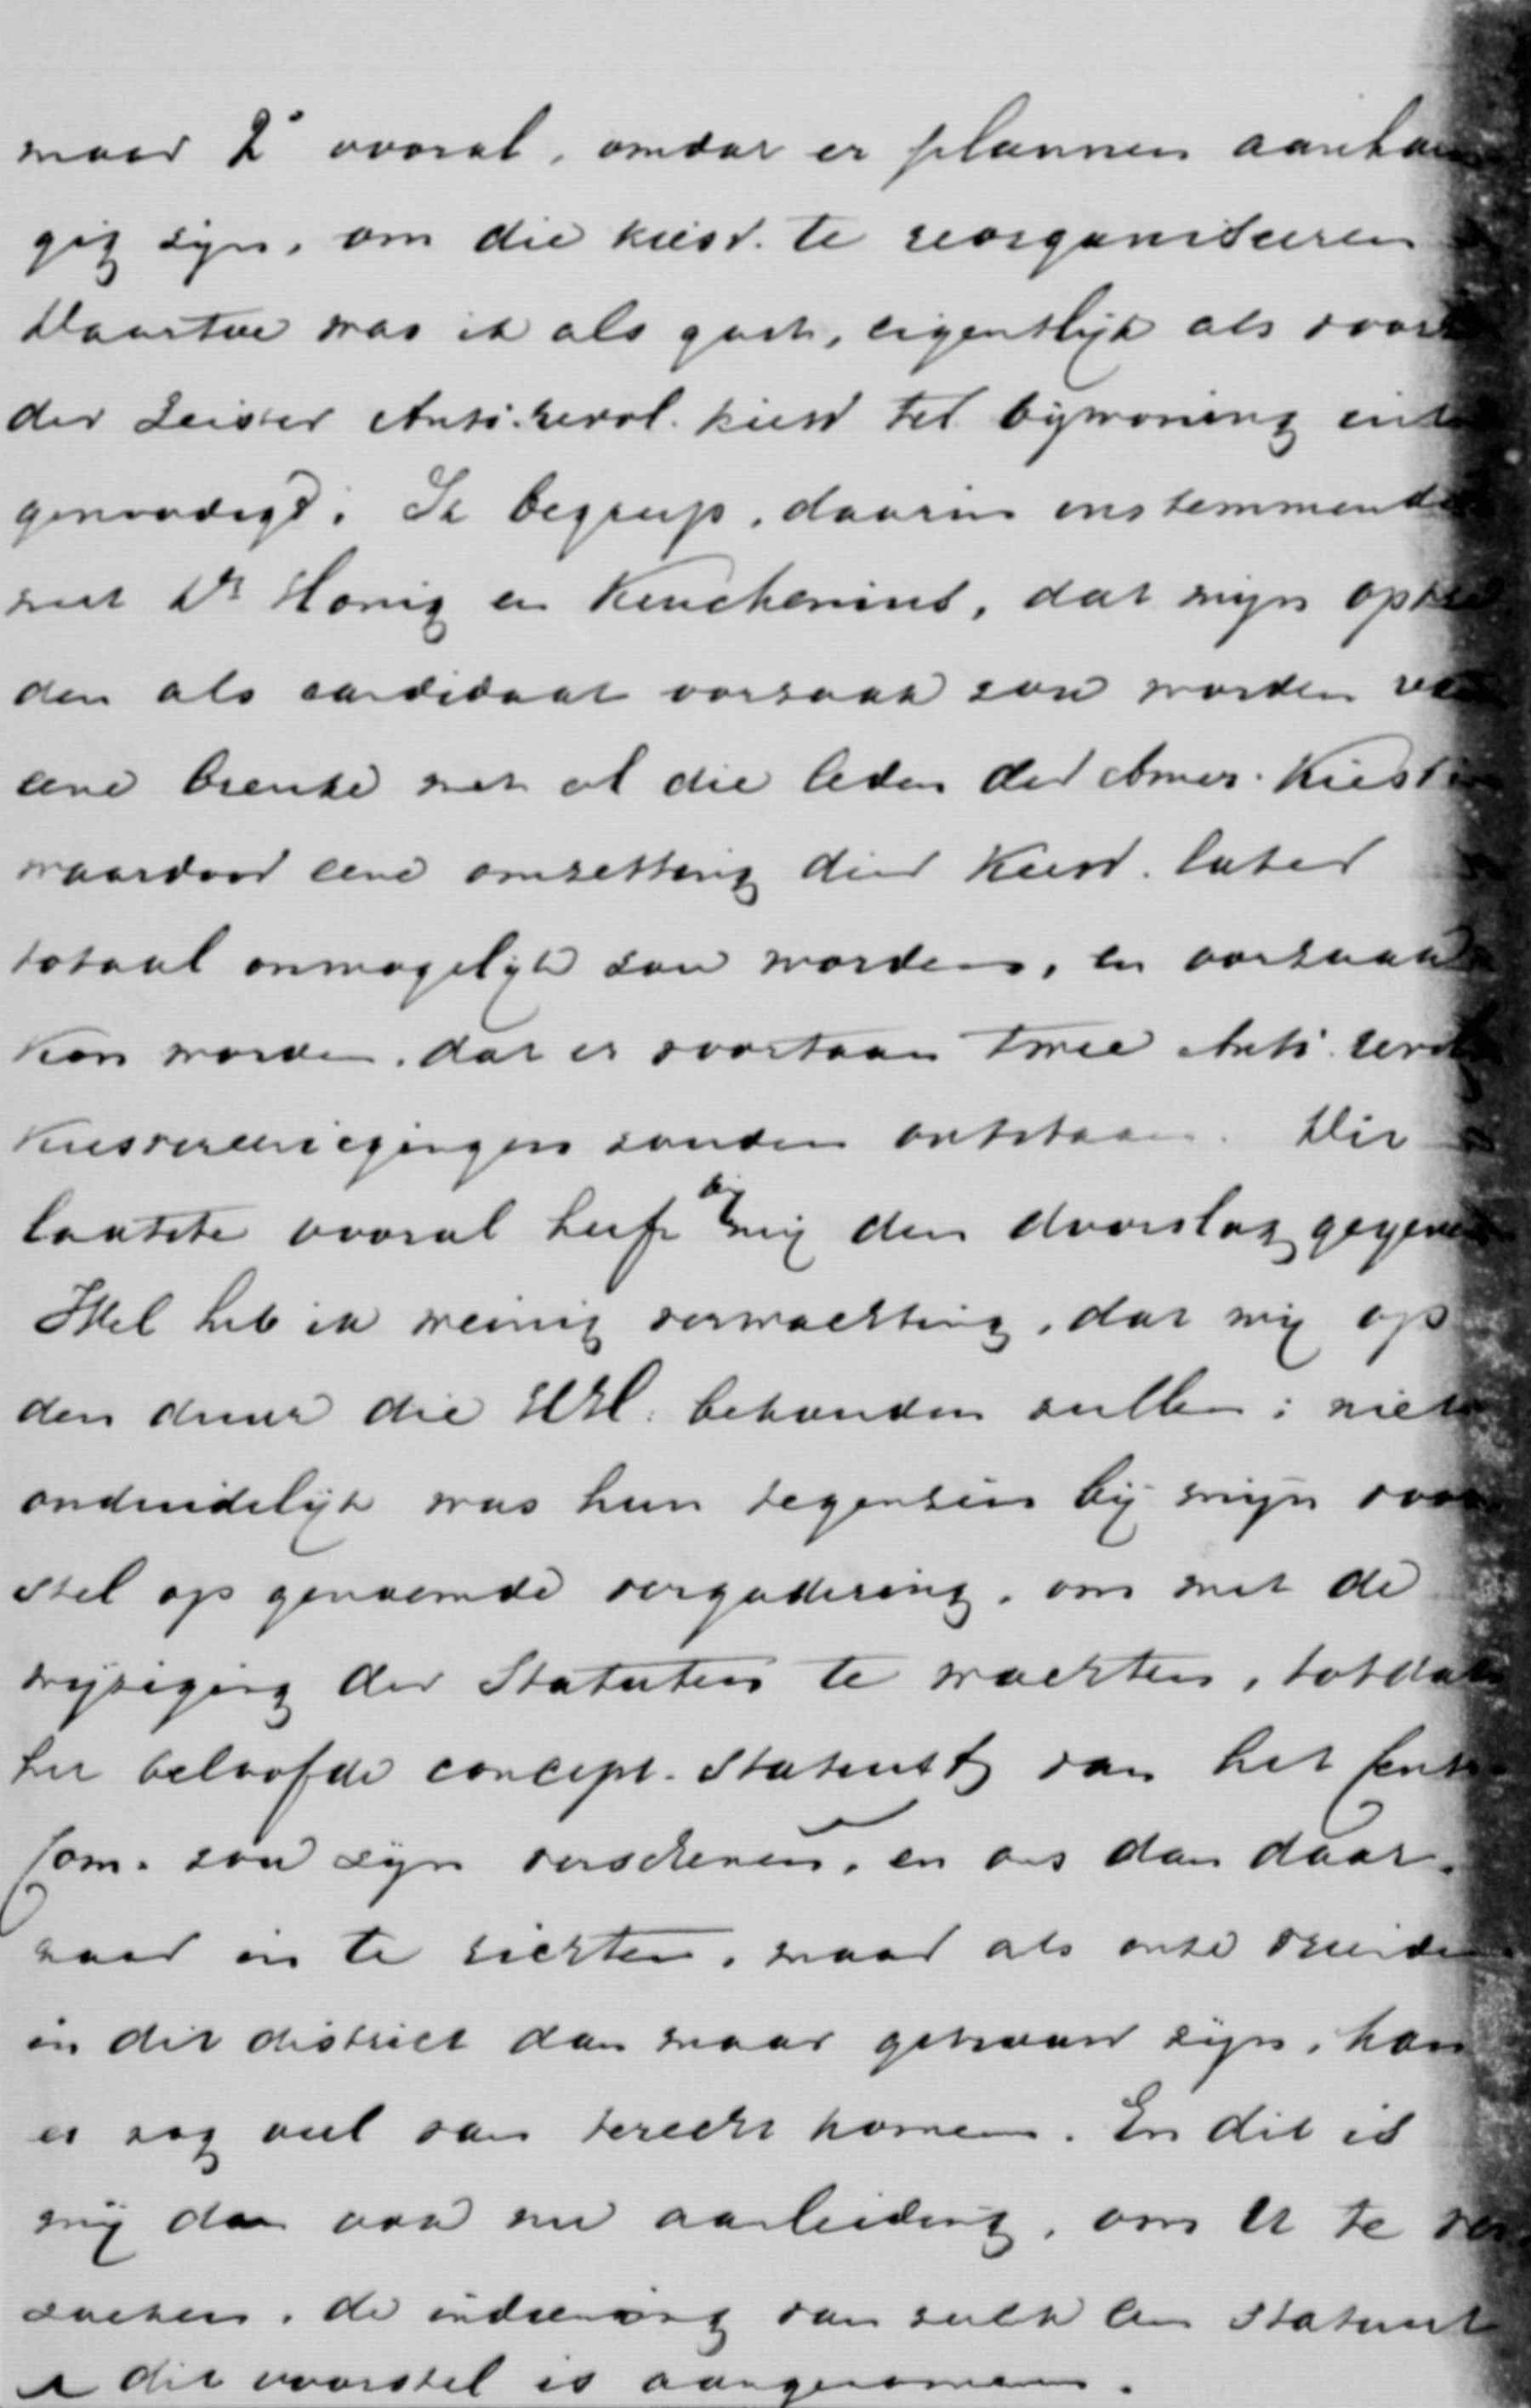 maar 2° vooral, omdat er plannen aanhan
gig zijn, om die kiesv. te reorganiseeren
Daartoe was ik als gast, eigentlijk als voorz
der Zeister Anti-revol. kiesv tot bijwoning uit
genoodigd. Ik begreep, daarin instemmende
met Dr Honig en Keuchenius, dat mijn optre
den als candidaat oorzaak zou worden van
eene breuke met al die leden der Amer. Kiesv
waardoor eene omzetting dier Kiesv. later
totaal onmogelijk zou worden, en oorzaak
kon worden, dat er voortaan twee Anti-revol
Kiesvereenigingen zouden ontstaan. Dit
laatste vooral heeft bij mij den doorslag gegeven
Wel heb ik weinig verwachting, dat wij op
den duur die HH. behouden zullen; niet
onduidelijk was hun tegenzin bij mijn voor
stel op genoemde vergadering, om met de
wijziging der Statuten te wachten, totdat
het beloofde concept-Statuut van het Cent
Com. zou zijn verschenen, en ons dan daar-
naar in te richten, maar als onze vrienden
in dit district dan maar getrouw zijn, kan
er nog veel van terecht komen. En dit is
mij dan ook nu aanleiding, om U te ver
zoeken, de indiening van zulk een Statuut
dit voorstel is aangenomen.